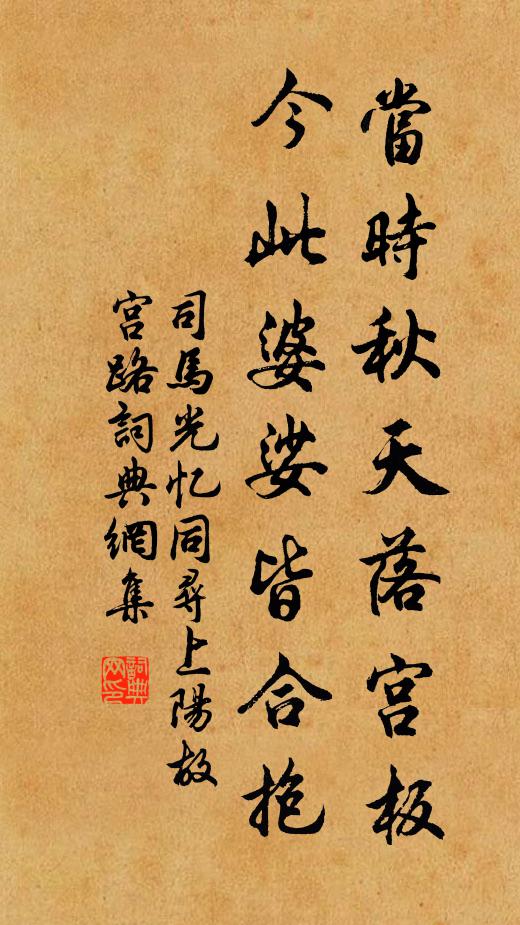 當時秋天落宮板
今此婆娑皆合抱
司馬光忆同尋上陽故
宮路詞典網集
詞典
网印